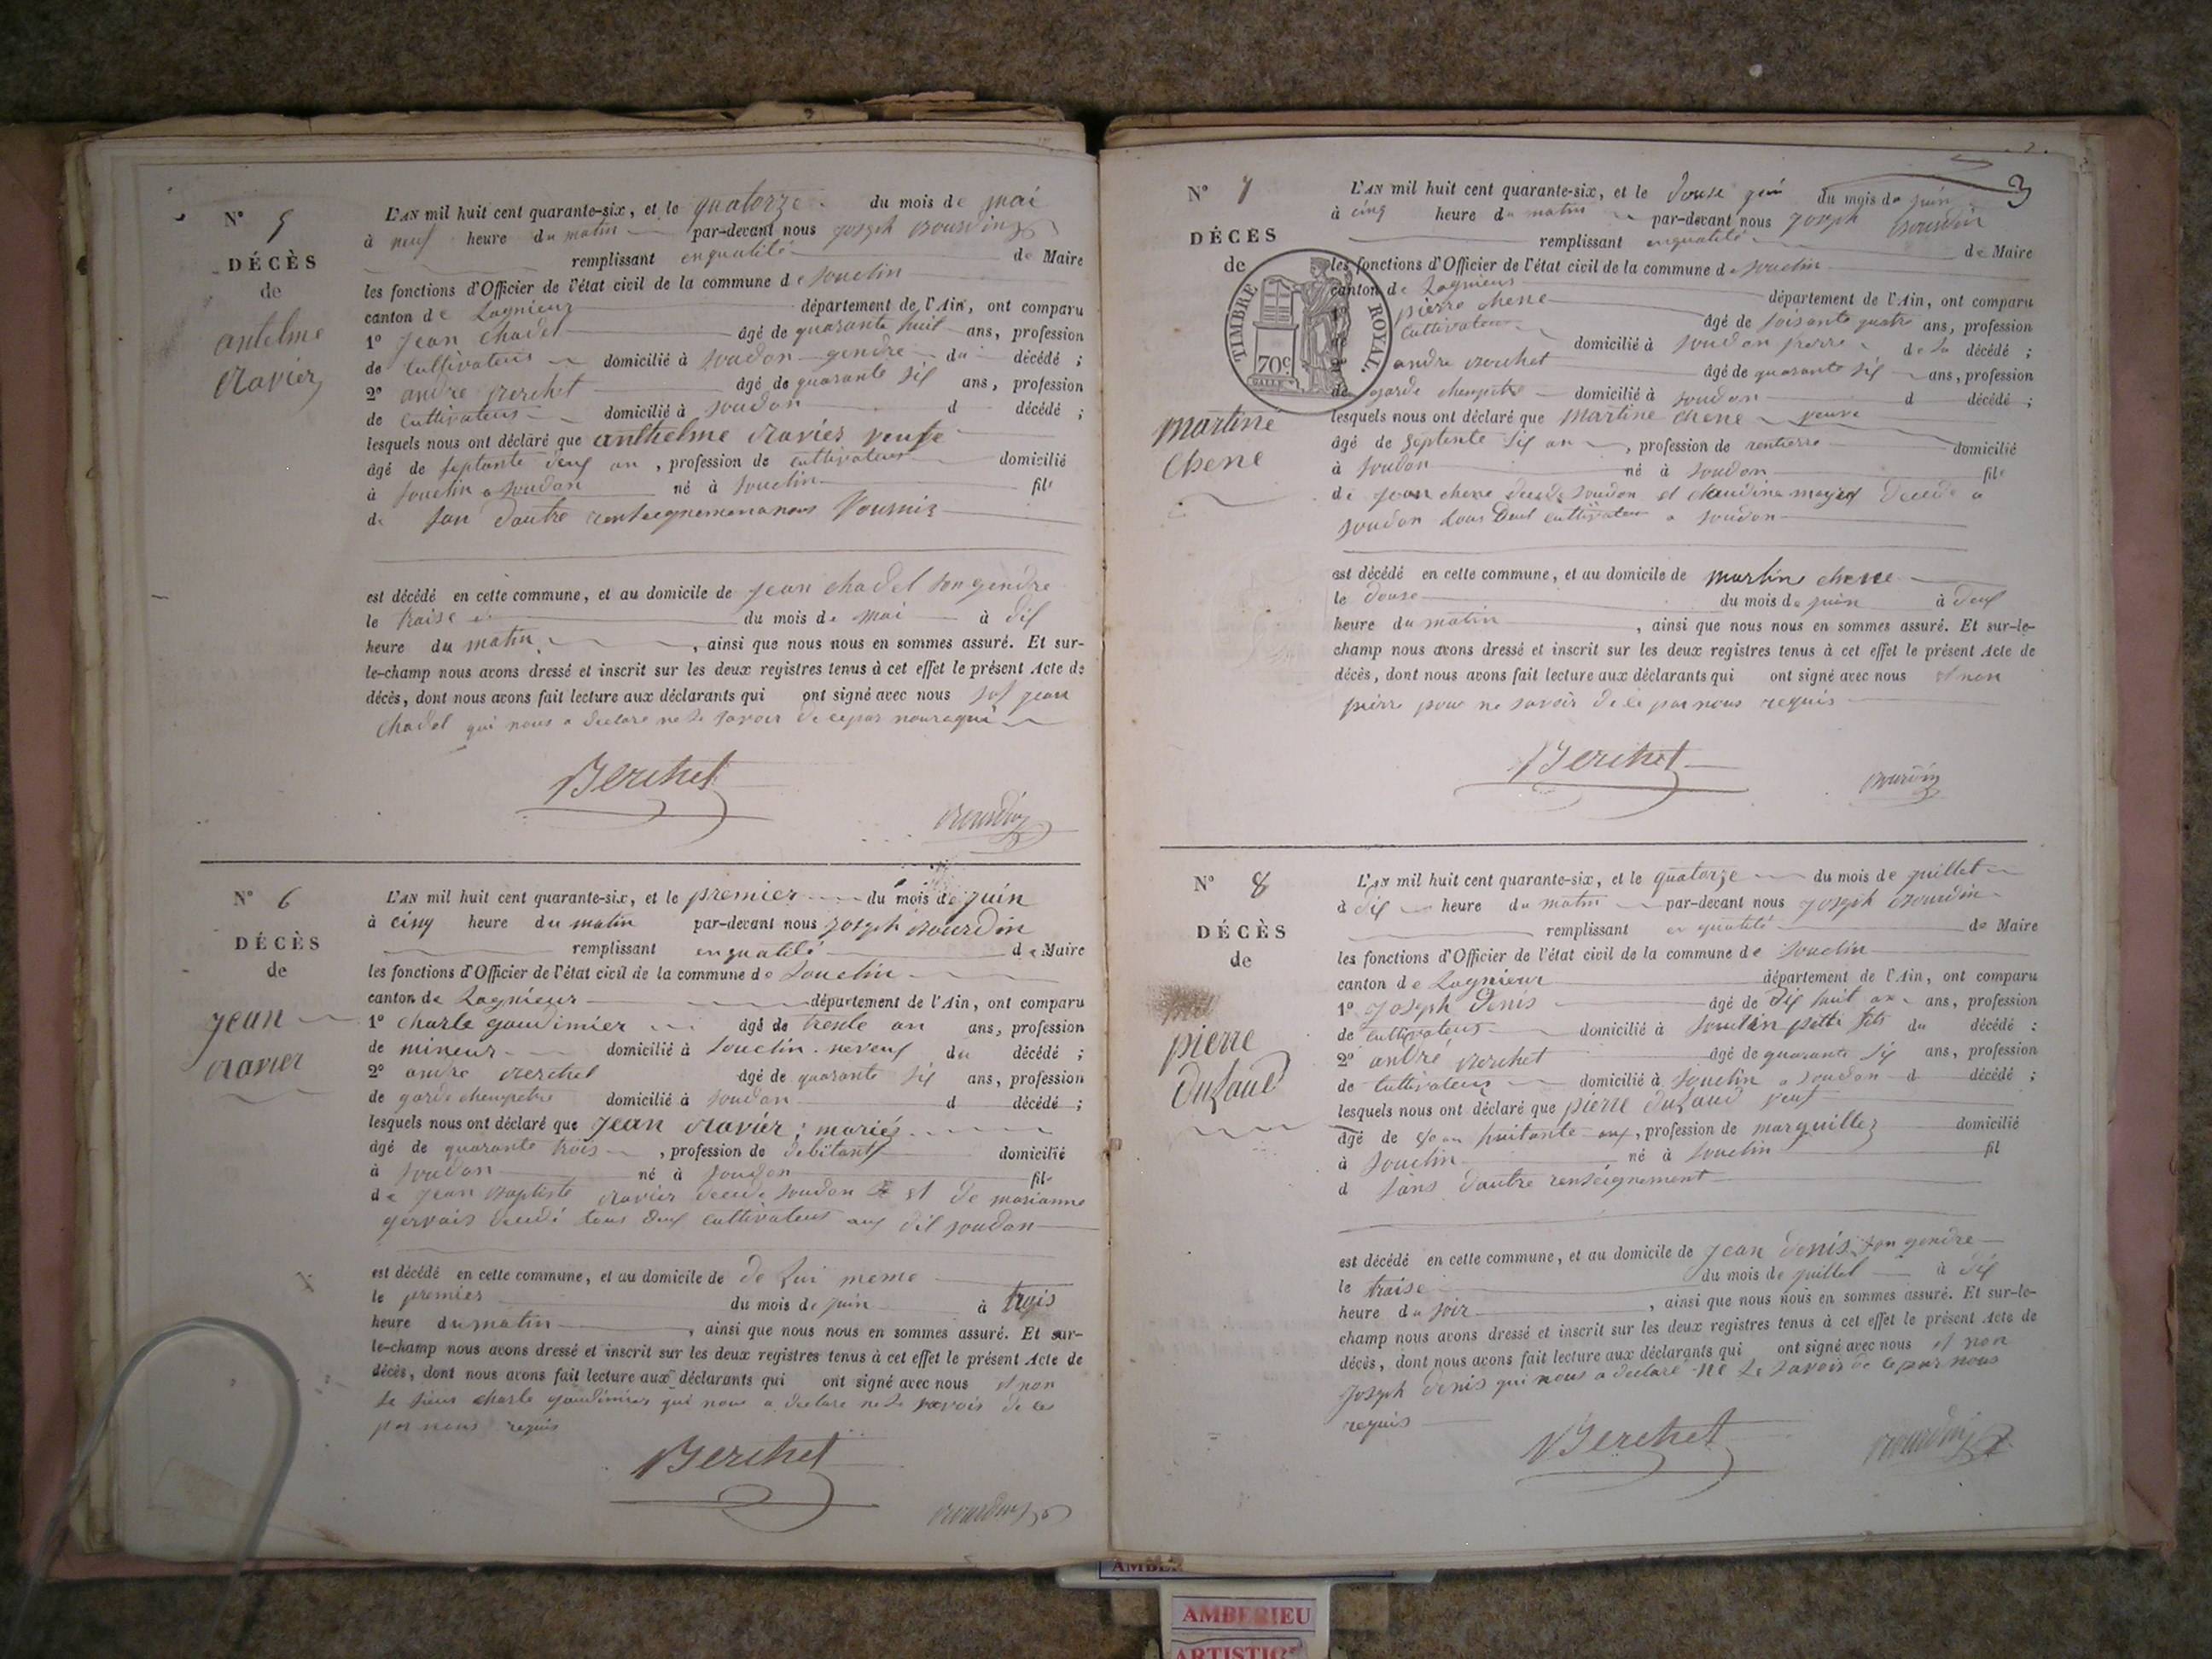 N° 5
DÉCÈS
de
antelme
ravier
L'AN mil huit cent quarante-six, et le quatorze du mois de mai
à neuf heure du matin par-devant nous joseph bourdin
remplissant enqualité de Maire
les fonctions d'Officier de l'état civil de la commune de souclin
canton de Lagnieux département de l'Ain, ont comparu
1° jean chadel âgé de quarante huit ans, profession
de cultivateur domicilié à soudon gendre du décédé ;
2° andre berchet âgé de quarante six ans, profession
de cultivateur domicilié à soudon d décédé ;
lesquels nous ont déclaré que anthelme ravier
âgé de septante deux an, profession de cultivateur domicilié
à souclin a soudon né à souclin fils
de san dautre
est décédé en cette commune, et au domicile de jean chadel son gendre
le traise du mois de mai à dix
heure du matin, ainsi que nous nous en sommes assuré. Et sur-
le-champ nous avons dressé et inscrit sur les deux registres tenus à cet effet le présent Acte de
décès, dont nous avons fait lecture aux déclarants qui ont signé avec nous jean
chadel qui nous a declare ne le savoir de ce par
Berchet
bourdin
N° 6
DÉCÈS
de
jean
ravier
L'AN mil huit cent quarante-six, et le premier du mois de juin
à cinq heure du matin par-devant nous joseph bourdin
remplissant enqualité de Maire
les fonctions d'Officier de l'état civil de la commune de souclin
canton de Lagnieux département de l'Ain, ont comparu
1° charle gaudimier âgé de trente an ans, profession
de mineur domicilié à souclin neveux du décédé ;
2° andre berchet âgé de quarante six ans, profession
de garde chempetre domicilié à soudon d décédé ;
lesquels nous ont déclaré que jean ravier ; marié
âgé de quarante trois, profession de debitant domicilié
à soudon né à soudon fils
de jean baptiste ravier decede soudon et de marianne
gervais decedé tous deux cultivateur aux dit soudon
est décédé en cette commune, et au domicile de de lui meme
le premier du mois de juin à trois
heure du matin, ainsi que nous nous en sommes assuré. Et sur-
le-champ nous avons dressé et inscrit sur les deux registres tenus à cet effet le présent Acte de
décès, dont nous avons fait lecture aux déclarants qui ont signé avec nous et non
le sieur charle gaudimier qui nous a declare ne le savoir de ce
par nous requis
Berchet
bourdin
3
N° 7
DÉCÈS
de
TIMBRE ROYAL.
70c
martine
chene
L'AN mil huit cent quarante-six, et le douse du mois de juin
à cinq heure du matin par-devant nous joseph bourdin
remplissant enqualité de Maire
les fonctions d'Officier de l'état civil de la commune de souclin
canton de Lagnieux département de l'Ain, ont comparu
pierre chene âgé de soisante quatre ans, profession
cultivateur domicilié à soudon de la décédé ;
2° andre berchet âgé de quarante six ans, profession
de garde chempetre domicilié à soudon d décédé ;
lesquels nous ont déclaré que martine chene veuve
âgé de septente six an, profession de rentierre domicilié
à soudon né à soudon fils
de jean chene soudon et claudine decede a
soudon tous deux cultivateur a soudon
est décédé en cette commune, et au domicile de martine chene
le douse du mois de juin à deux
heure du matin, ainsi que nous nous en sommes assuré. Et sur-le-
champ nous avons dressé et inscrit sur les deux registres tenus à cet effet le présent Acte de
décès, dont nous avons fait lecture aux déclarants qui ont signé avec nous et non
pierre pour ne savoir de ce par nous requis
Berchet
bourdin
N° 8
DÉCÈS
de
pierre
dufaud
L'AN mil huit cent quarante-six, et le quatorze du mois de juillet
à dix heure du matin par-devant nous joseph bourdin
remplissant en qualité de Maire
les fonctions d'Officier de l'état civil de la commune de souclin
canton de Lagnieux département de l'Ain, ont comparu
1° joseph denis âgé de dix huit an ans, profession
de cultivateur domicilié à souclin petit fils du décédé ;
2° andré berchet âgé de quarante six ans, profession
de cultivateur domicilié à souclin a soudon d décédé ;
lesquels nous ont déclaré que pierre dufaud veuf
âgé de huitante, profession de marguillez domicilié
à souclin né à souclin fil
d sans dautre renseignement
est décédé en cette commune, et au domicile de jean denis son gendre
le traise du mois de juillet à dix
heure du soir, ainsi que nous nous en sommes assuré. Et sur-le-
champ nous avons dressé et inscrit sur les deux registres tenus à cet effet le présent Acte de
décès, dont nous avons fait lecture aux déclarants qui ont signé avec nous et non
joseph denis qui nous a declaré ne le savoir de ce par nous
requis
Berchet
bourdin
AMBERIEU